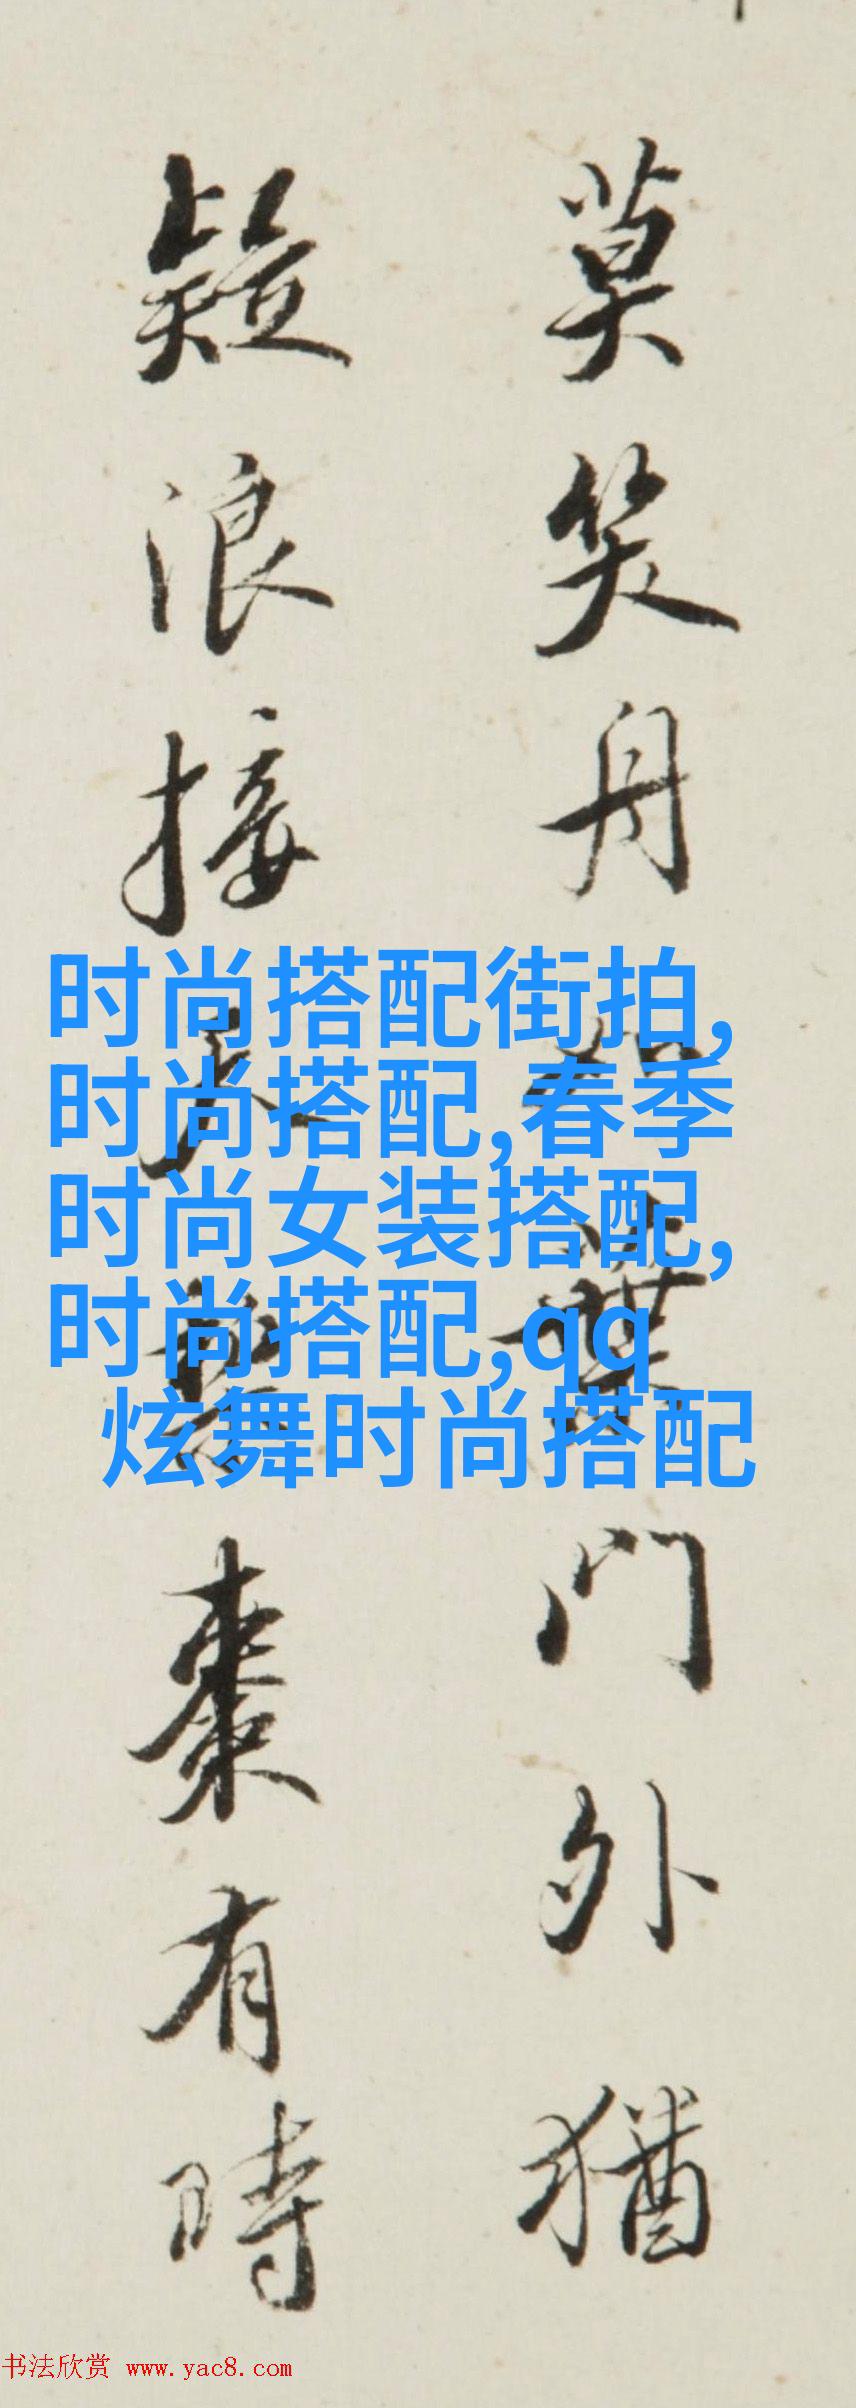 莫笑舟如葉門外猶
疑浪接天 棗有時
时尚搭配街拍,
时尚搭配,春季
时尚女装搭配,
时尚搭配,qq
炫舞时尚搭配
书法欣赏 www.yac8.com